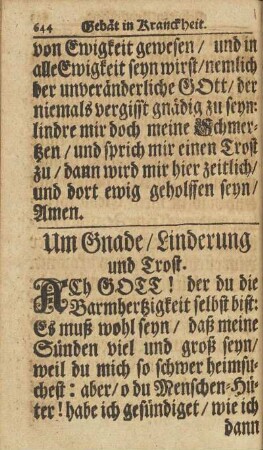 644 Gebät in Kranckheit.
von Ewigkeit gewesen / und in
alle Ewigkeit seyn wirst / nemlich
der unveränderliche GOtt / der
niemals vergisst gnädig zu seyn:
lindre mir doch meine Schmer-
tzen / und sprich mir einen Trost
zu / dann wird mir hier zeitlich /
und dort ewig geholffen seyn /
Amen.
Um Gnade / Linderung
und Trost.
ACh GOTT! der du die
Barmhertzigkeit selbst bist:
Es muß wohl seyn / daß meine
Sünden viel und groß seyn /
weil du mich so schwer heimsu-
chest: aber / o du Menschen-Hü-
ter! habe ich gesündiget / wie ich
dann